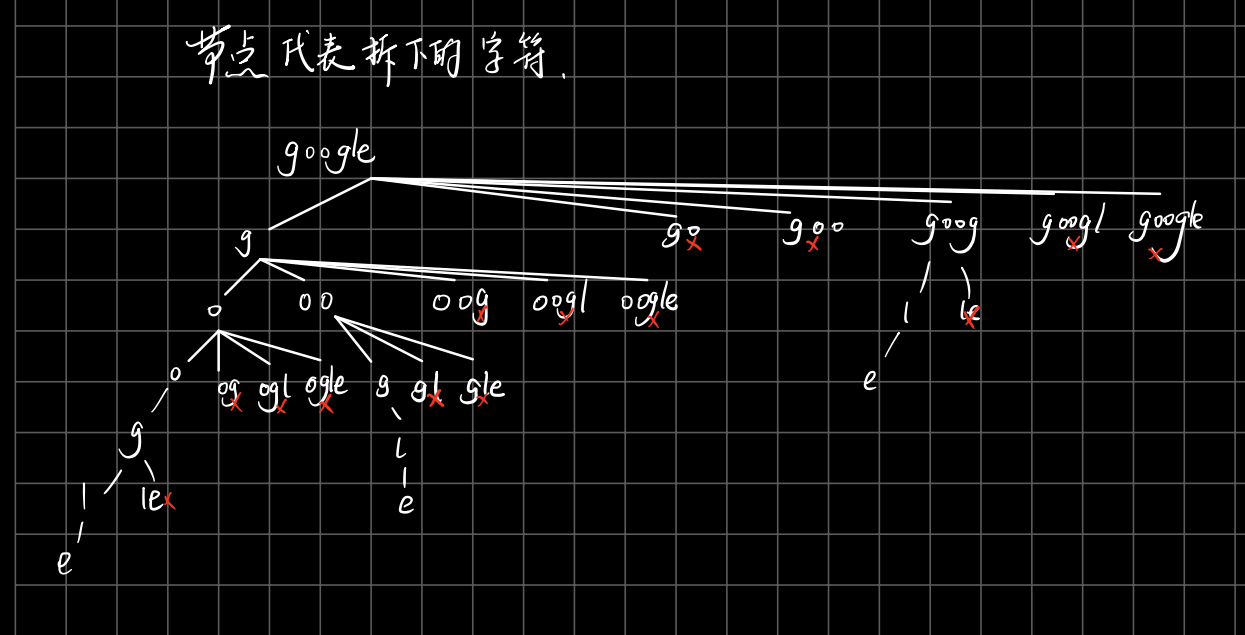 节点代表拆下的字符.
google
g go x goo x goog googl x google x
o oo oog x oogl x oogle x l le x
o og x ogl x ogle x g gl x gle x e
g l
l le x e
e